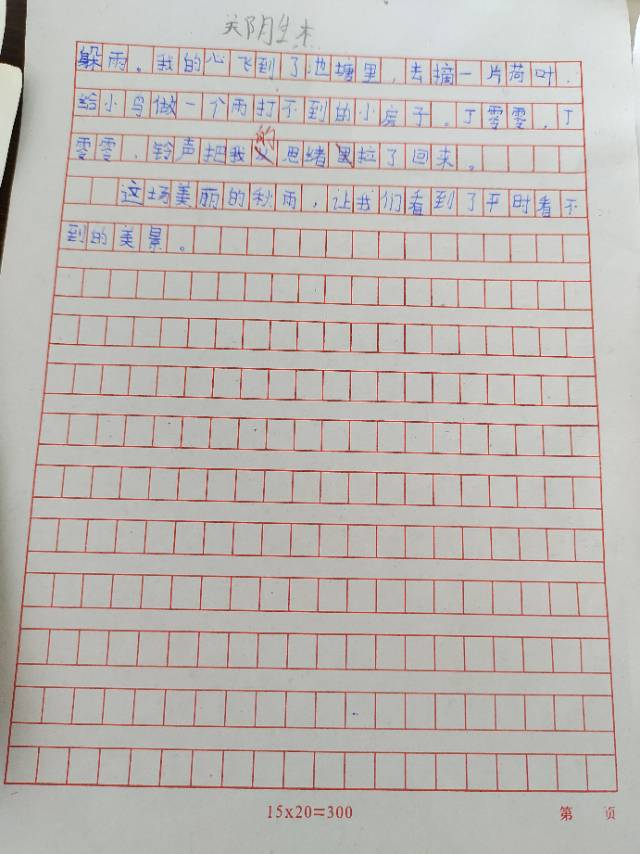 郑阴生木
躲雨。我的心飞到了池塘里，去摘一片荷叶，
给小鸟做一个雨打不到的小房子。丁零零，丁
零零，铃声把我的思绪拉了回来。
这场美丽的秋雨，让我们看到了平时看不
到的美景。
15x20=300
第 页